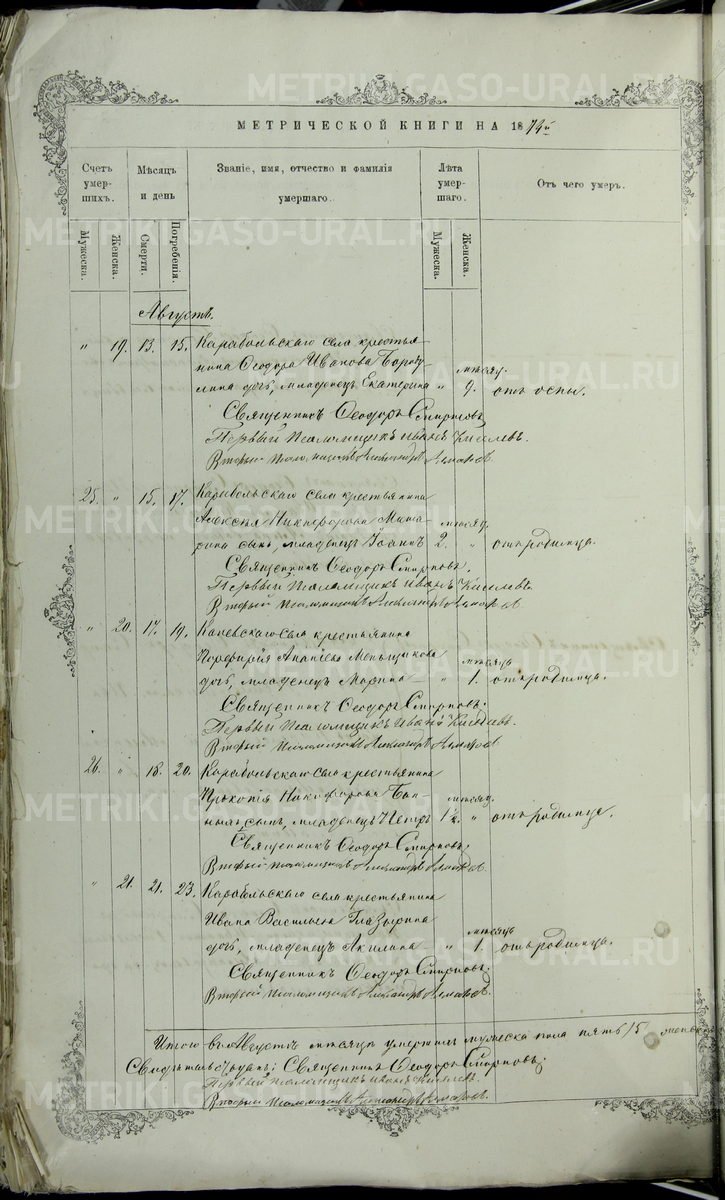 METRIKI.GASO-URAL.RU
МЕТРИЧЕСКОЙ КНИГИ НА 1874й
Счетъ умер-шихъ.
Мѣсяцъ и день
Званіе, имя, отчество и фамилія умершаго.
Лѣта умер-шаго.
Отъ чего умеръ.
Мужеска.
Женска.
Смерти.
Погребенія.
Мужеска.
Женска.
Августъ.
" 19. 13. 15. Карабольскаго села крестья-
нина Ѳеодора Иванова мѣсяц.
дочь, младенецъ Екатерина " 9. отъ оспы.
Священникъ Ѳеодоръ Смирновъ
Первый Псаломщикъ Иванъ Киселевъ.
Второй Псаломщикъ Александръ
25. " 15. 17. Карабольскаго села крестьянина
Алексѣя Никифорова мѣсяц.
сынъ, младенецъ Іоаннъ 2. " отъ родимца.
Священникъ Ѳеодоръ Смирновъ.
Первый Псаломщикъ Иванъ Киселевъ.
Второй Псаломщикъ Александръ
" 20. 17. 19. села крестьянина
Порфирія Меньщикова мѣсяцъ
дочь, младенецъ Марина " 1. отъ родимца.
Священникъ Ѳеодоръ Смирновъ.
Первый Псаломщикъ Иванъ Киселевъ.
Второй Псаломщикъ Александръ
26. " 18. 20. Карабольскаго села крестьянина
Прокопія Никифорова мѣсяц.
сынъ, младенецъ Петръ 1½. " отъ родимца.
Священникъ Ѳеодоръ Смирновъ,
Второй Псаломщикъ Александръ
" 21. 21. 23. Карабольскаго села крестьянина
Ивана Васильева Глазырина мѣсяцъ
дочь, младенецъ Акилина " 1. отъ родимца.
Священникъ Ѳеодоръ Смирновъ.
Второй Псаломщикъ Александръ
Итого въ Августѣ мѣсяцѣ умершихъ мужеска пола пять /5
Свидѣтельствуемъ: Священникъ Ѳеодоръ Смирновъ;
Первый Псаломщикъ Иванъ Киселевъ.
Второй Псаломщикъ Александръ